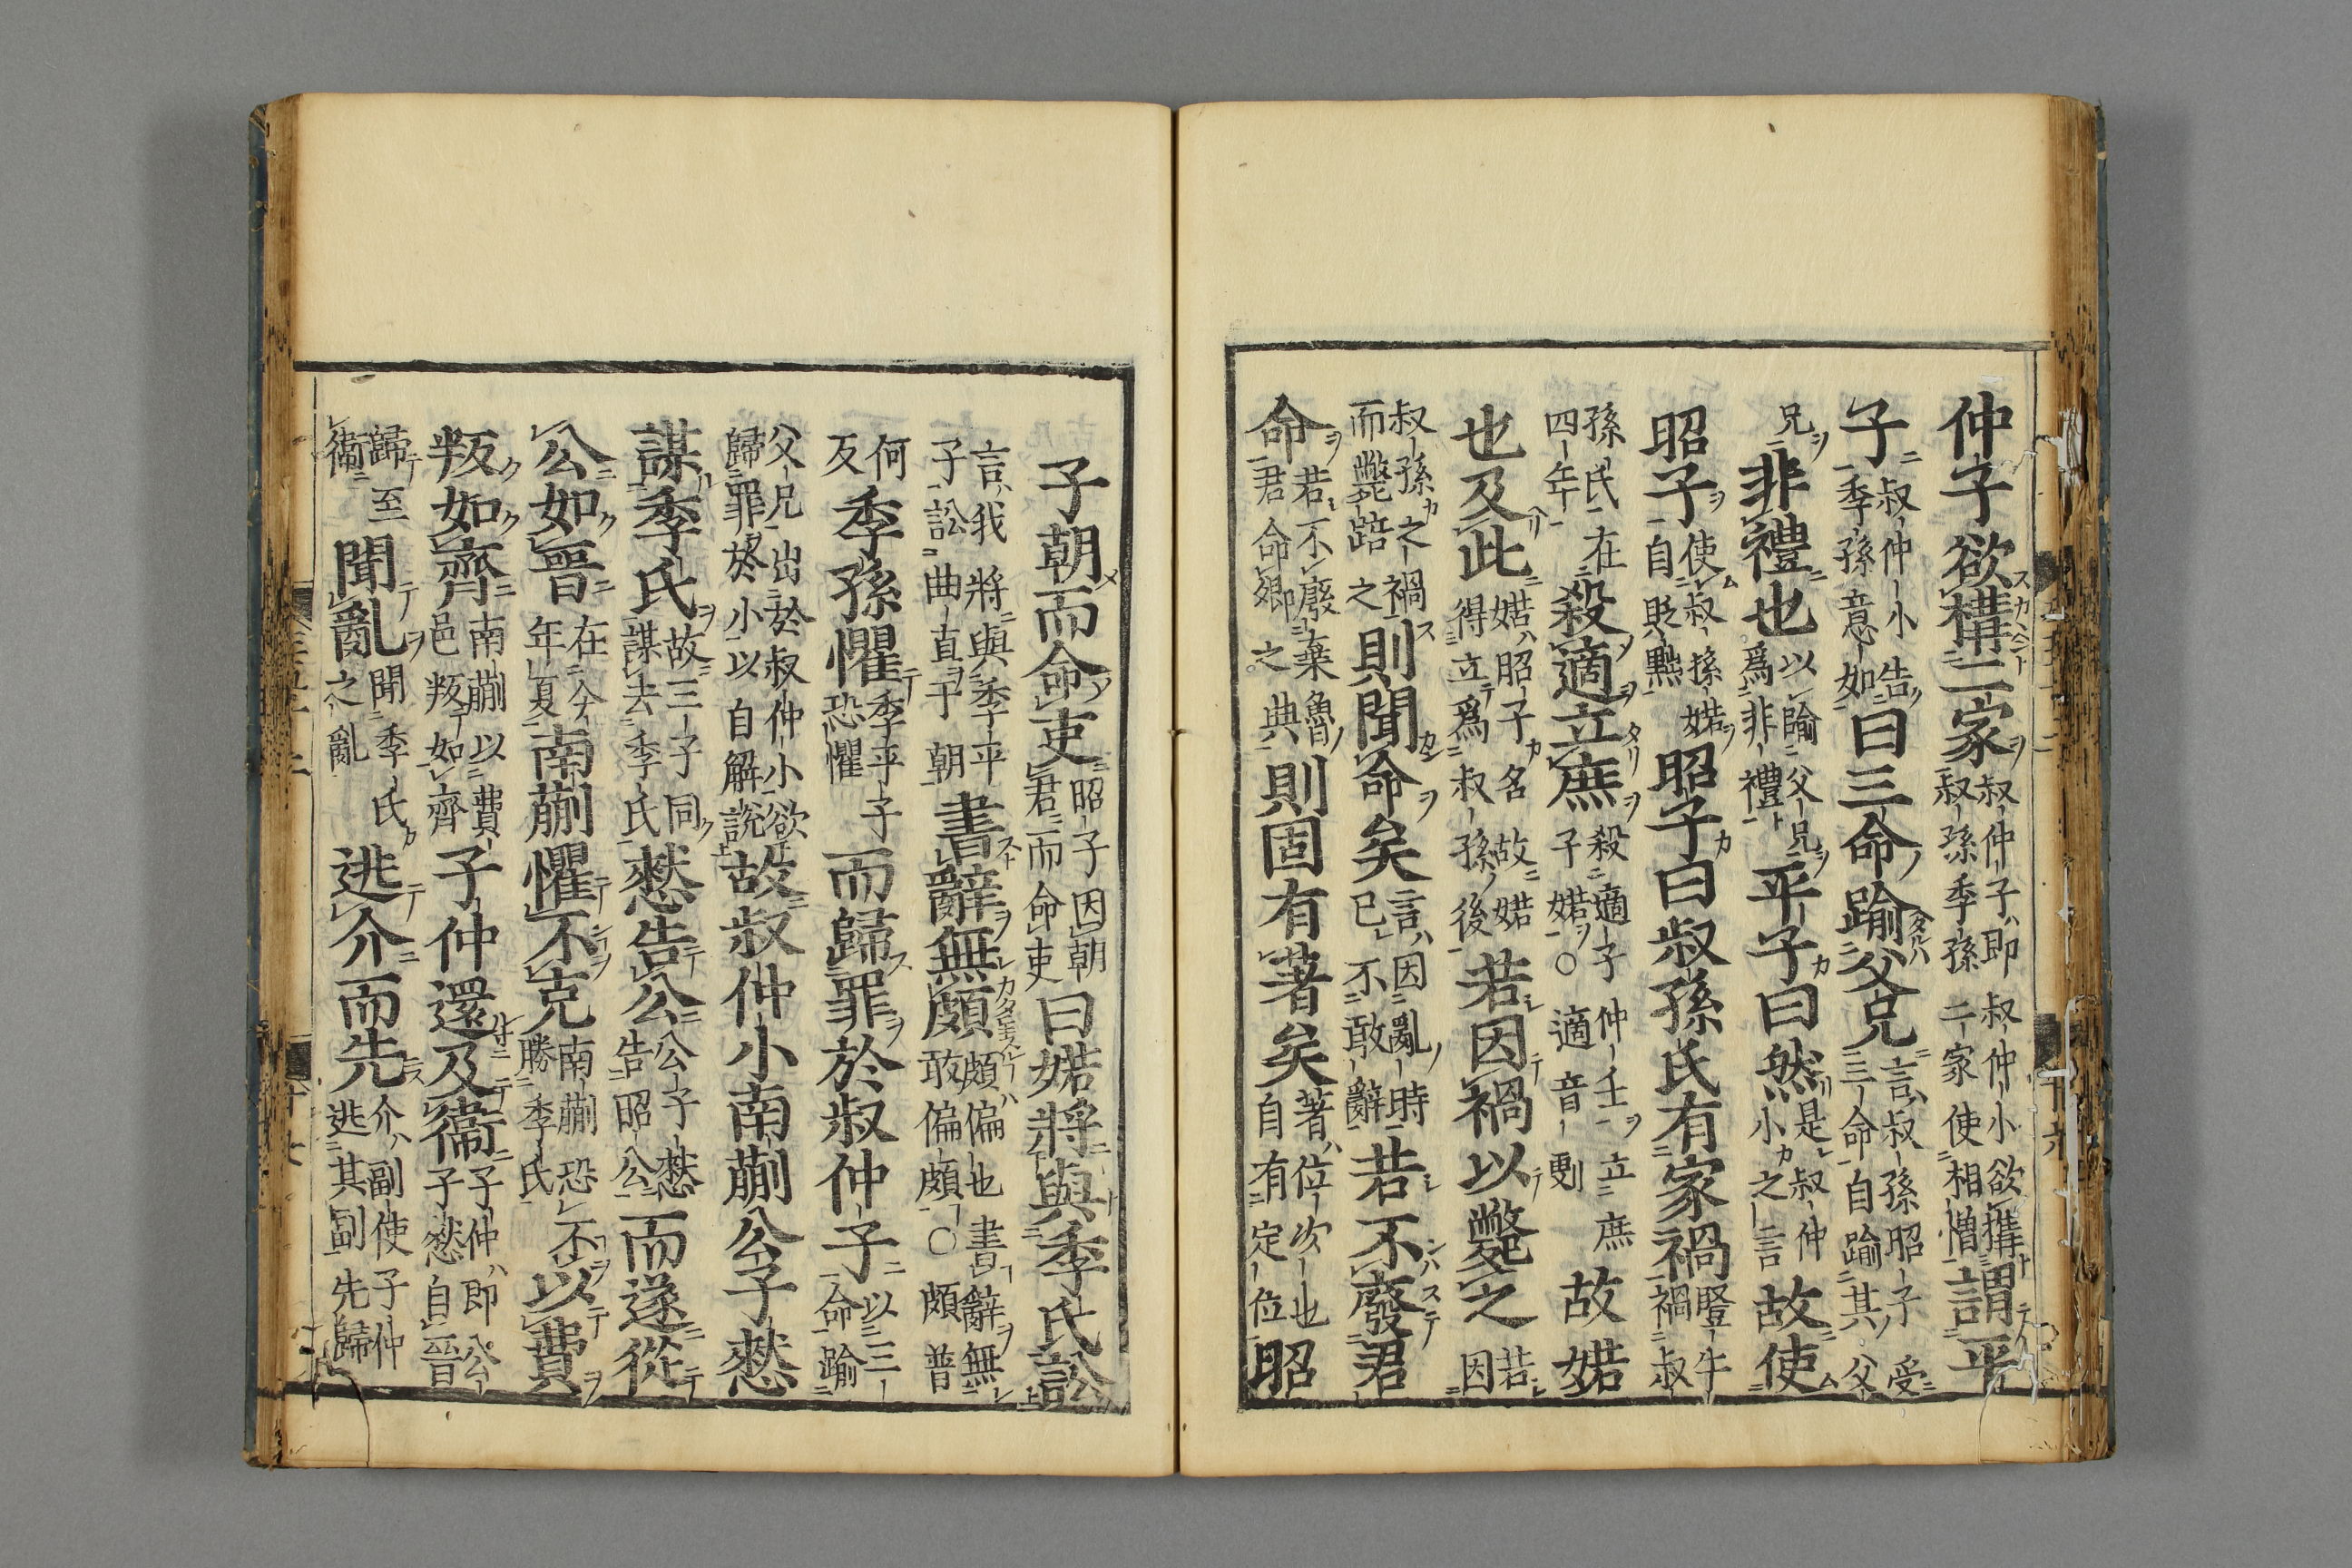 仲子欲構二家叔仲子即叔仲小欲搆叔孫季孫二家使相憎謂平
子叔仲小告季孫意如曰三命踰父兄言叔孫昭子受三命自踰其父
兄非禮也以踰父兄爲非禮平子曰然是叔仲小之言故使
昭子使叔孫婼自貶黜昭子曰叔孫氏有家禍豎牛禍叔
孫氏在四年殺適立庶殺適子仲壬立庶子婼○適音剭故婼
也及此婼昭子名故婼得立爲叔孫後若因禍以斃之若因
叔孫之禍而斃踣之則聞命矣言因亂時已不敢辭若不廢君
命若不廢棄魯君命卿之典則固有著矣著位次也自有定位昭
子朝而命吏昭子因朝君而命吏曰婼將與季氏訟
言我將與季平子訟曲直于朝書辭無頗頗偏也書辭無敢偏頗○頗普
何反季孫懼季平子恐懼而歸罪於叔仲子以三命踰
父兄出於叔仲小欲歸罪於小以自解說故叔仲小南蒯公子憖
謀季氏故三子同謀去季氏憖告公公子憖告昭公而遂從
公如晉在今年夏南蒯懼不克南蒯恐不勝季氏以費
叛如齊南蒯以費邑叛如齊子仲還及衞子仲即公子憖自晉
歸至衞聞亂聞季氏之亂逃介而先介副使子仲逃其副先歸